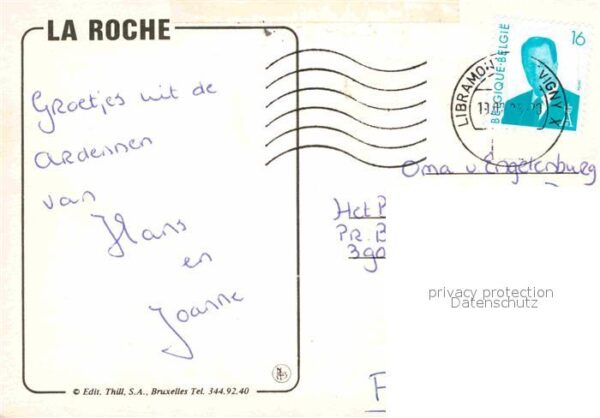 LA ROCHE
Groetjes uit de
Ardennen
van
Hans
en
Joanne
© Edit. Thill, S.A., Bruxelles Tel. 344.92.40
16
BELGIQUE-BELGIE
LIBRAMON
VIGNY X
Oma v Engelenburg
Het P
PR. B
390
privacy protection
Datenschutz
F